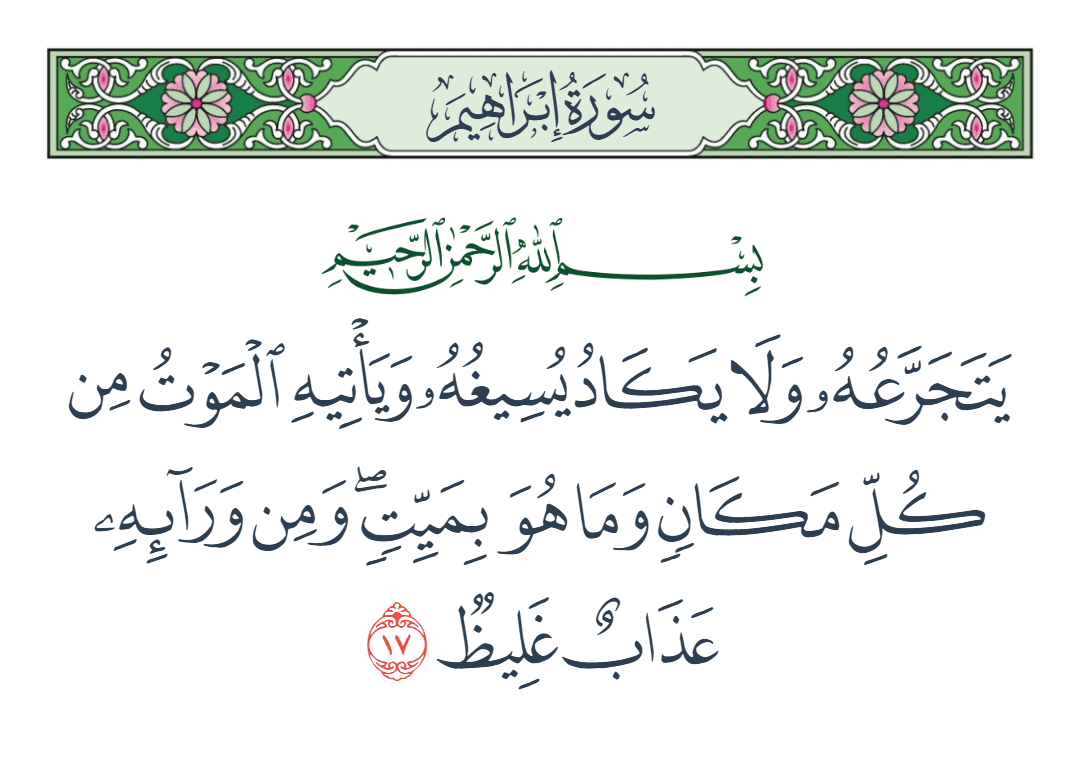 سُورَةُ إِبۡرَاهِيمَ
بِسۡمِ ٱللَّهِ ٱلرَّحۡمَٰنِ ٱلرَّحِيمِ
يَتَجَرَّعُهُۥ وَلَا يَكَادُ يُسِيغُهُۥ وَيَأۡتِيهِ ٱلۡمَوۡتُ مِن
كُلِّ مَكَانٖ وَمَا هُوَ بِمَيِّتٖۖ وَمِن وَرَآئِهِۦ
عَذَابٌ غَلِيظٞ ١٧